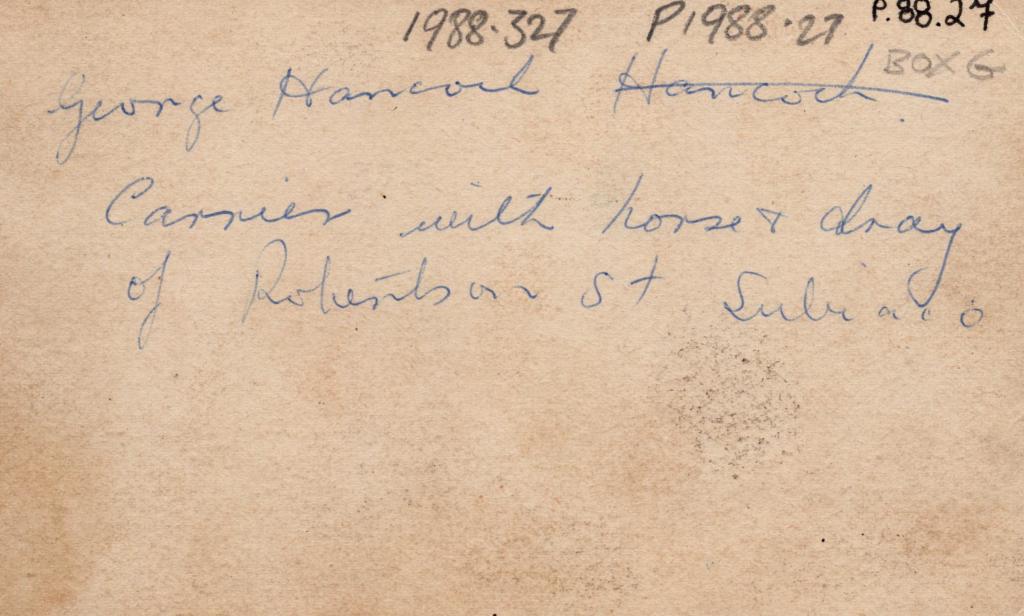 1988.327 P1988.27 P.88.27
BOX G
George Hancock Hancock
Carrier with horse & dray
of Robertson St Subiaco